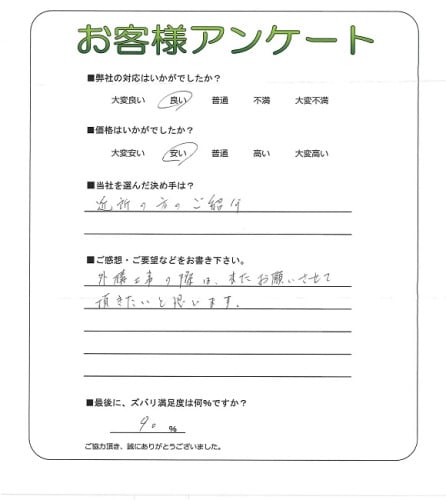 お客様アンケート
■弊社の対応はいかがでしたか？
大変良い 良い 普通 不満 大変不満
■価格はいかがでしたか？
大変安い 安い 普通 高い 大変高い
■当社を選んだ決め手は？
近所の方のご紹介
■ご感想・ご要望などをお書き下さい。
外構工事の際は、またお願いさせて
頂きたいと思います。
■最後に、ズバリ満足度は何%ですか？
90 %
ご協力頂き、誠にありがとうございました。